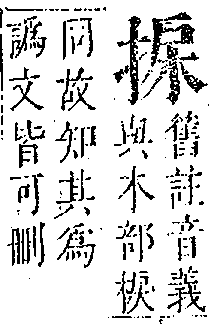 舊註音義
與木部
同故知其為
譌文皆可刪